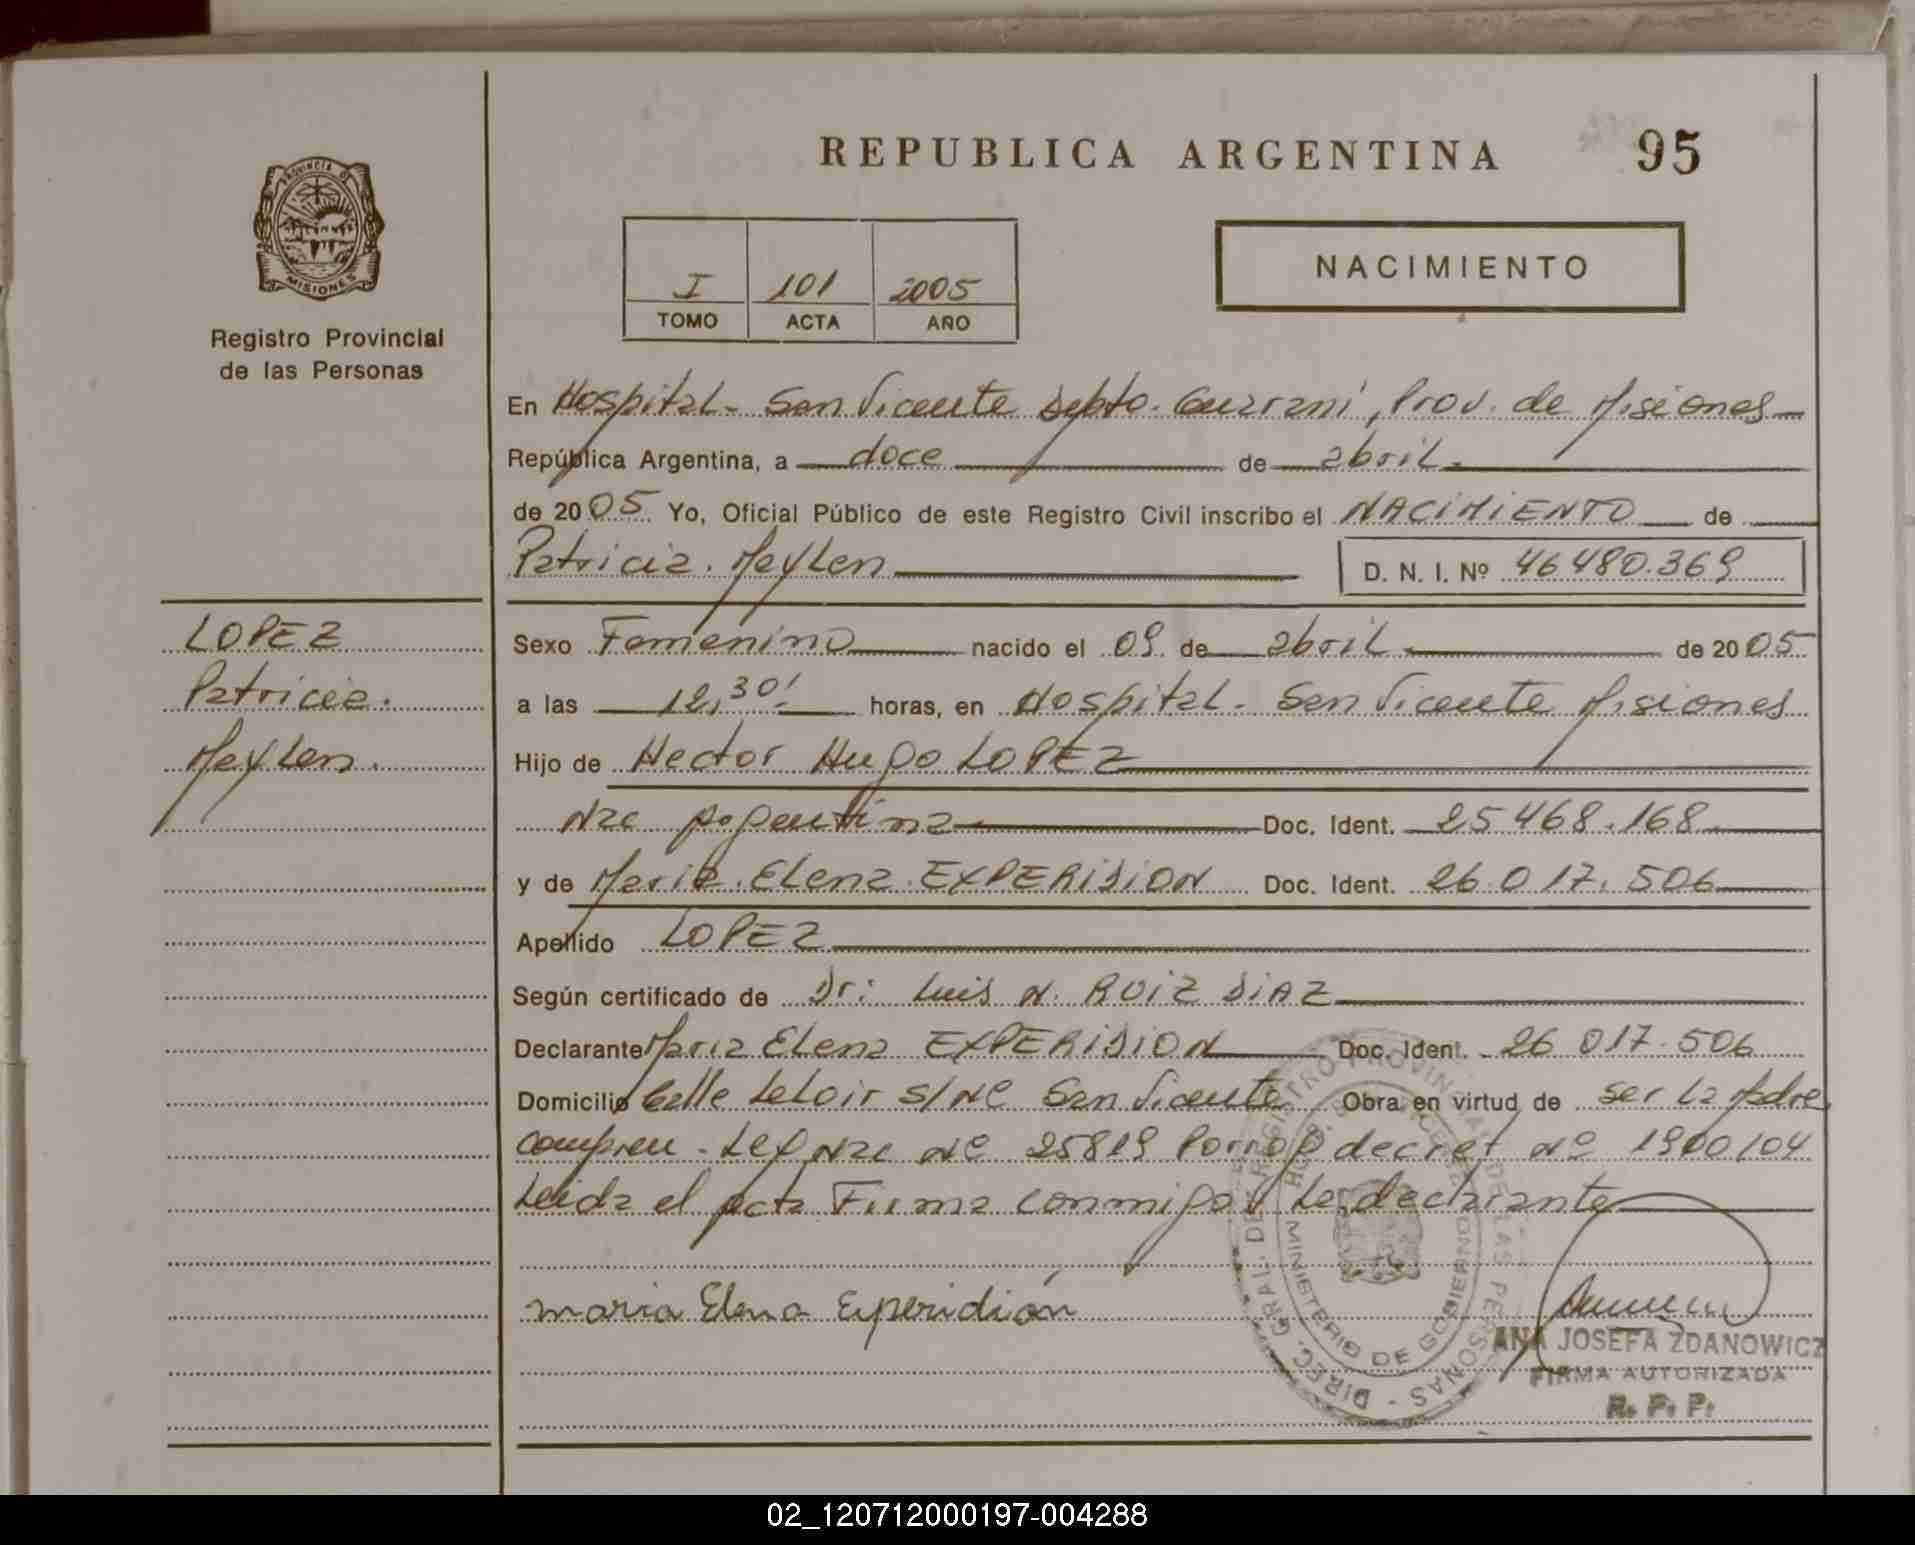 REPUBLICA ARGENTINA 95
PROVINCIA DE
MISIONES
Registro Provincial
de las Personas
I 101 2005
TOMO ACTA AÑO
NACIMIENTO
En Hospital - San Vicente Depto. Guaraní, Prov. de Misiones
República Argentina, a doce de abril.
de 2005 Yo, Oficial Público de este Registro Civil inscribo el NACIMIENTO de
Patricia. Maylen D. N. I. Nº 46480.369
LOPEZ
Patricia.
Maylen.
Sexo Femenino nacido el 09 de abril de 2005
a las 12,30' horas, en Hospital - San Vicente Misiones
Hijo de Hector Hugo LOPEZ
Nac Argentina Doc. Ident. 25 468.168
y de Maria Elena EXPERIDION Doc. Ident. 26.017.506
Apellido LOPEZ
Según certificado de Dr: Luis N. RUIZ DIAZ
Declarante Maria Elena EXPERIDION Doc. Ident. 26 017.506
Domicilio Calle Leloir S/Nº San Vicente Obra en virtud de ser la Madre
Ley Nac Nº 25819 decret Nº 1900/04
Leida el acta Firma conmigo la declarante
maria Elena Experidión
DIREC. GRAL. DE REGISTRO PROVINCIAL DE LAS PERSONAS
MINISTERIO DE GOBIERNO
ANA JOSEFA ZDANOWICZ
FIRMA AUTORIZADA
R. P. P.
02_120712000197-004288